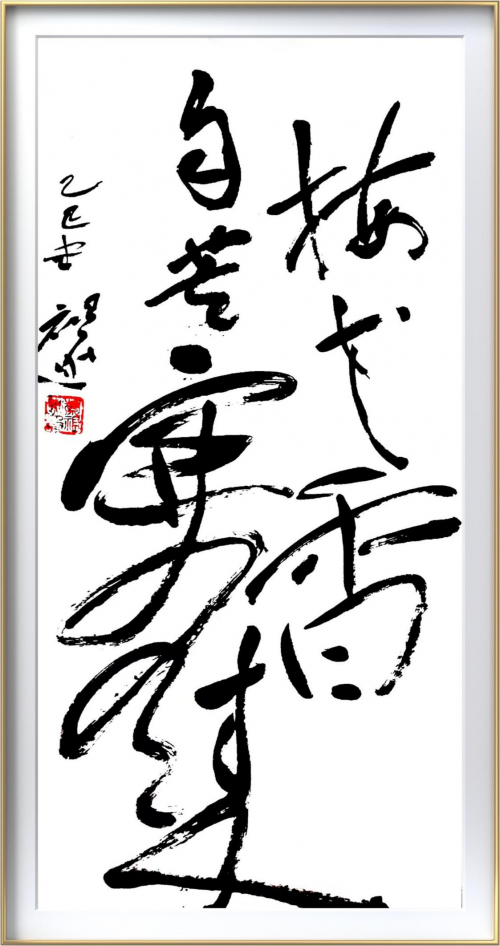 梅花香
自苦寒来
乙巳